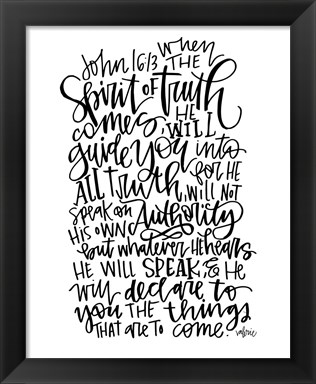 John 16:13 when
THE
Spirit of truth
comes, HE WILL
guide you into
ALL TRUTH, for HE
WILL NOT
speak on
HIS OWN Authority
but whatever HE hears
HE WILL SPEAK, & HE
will declare to
you THE things
THAT are TO come.
valerie